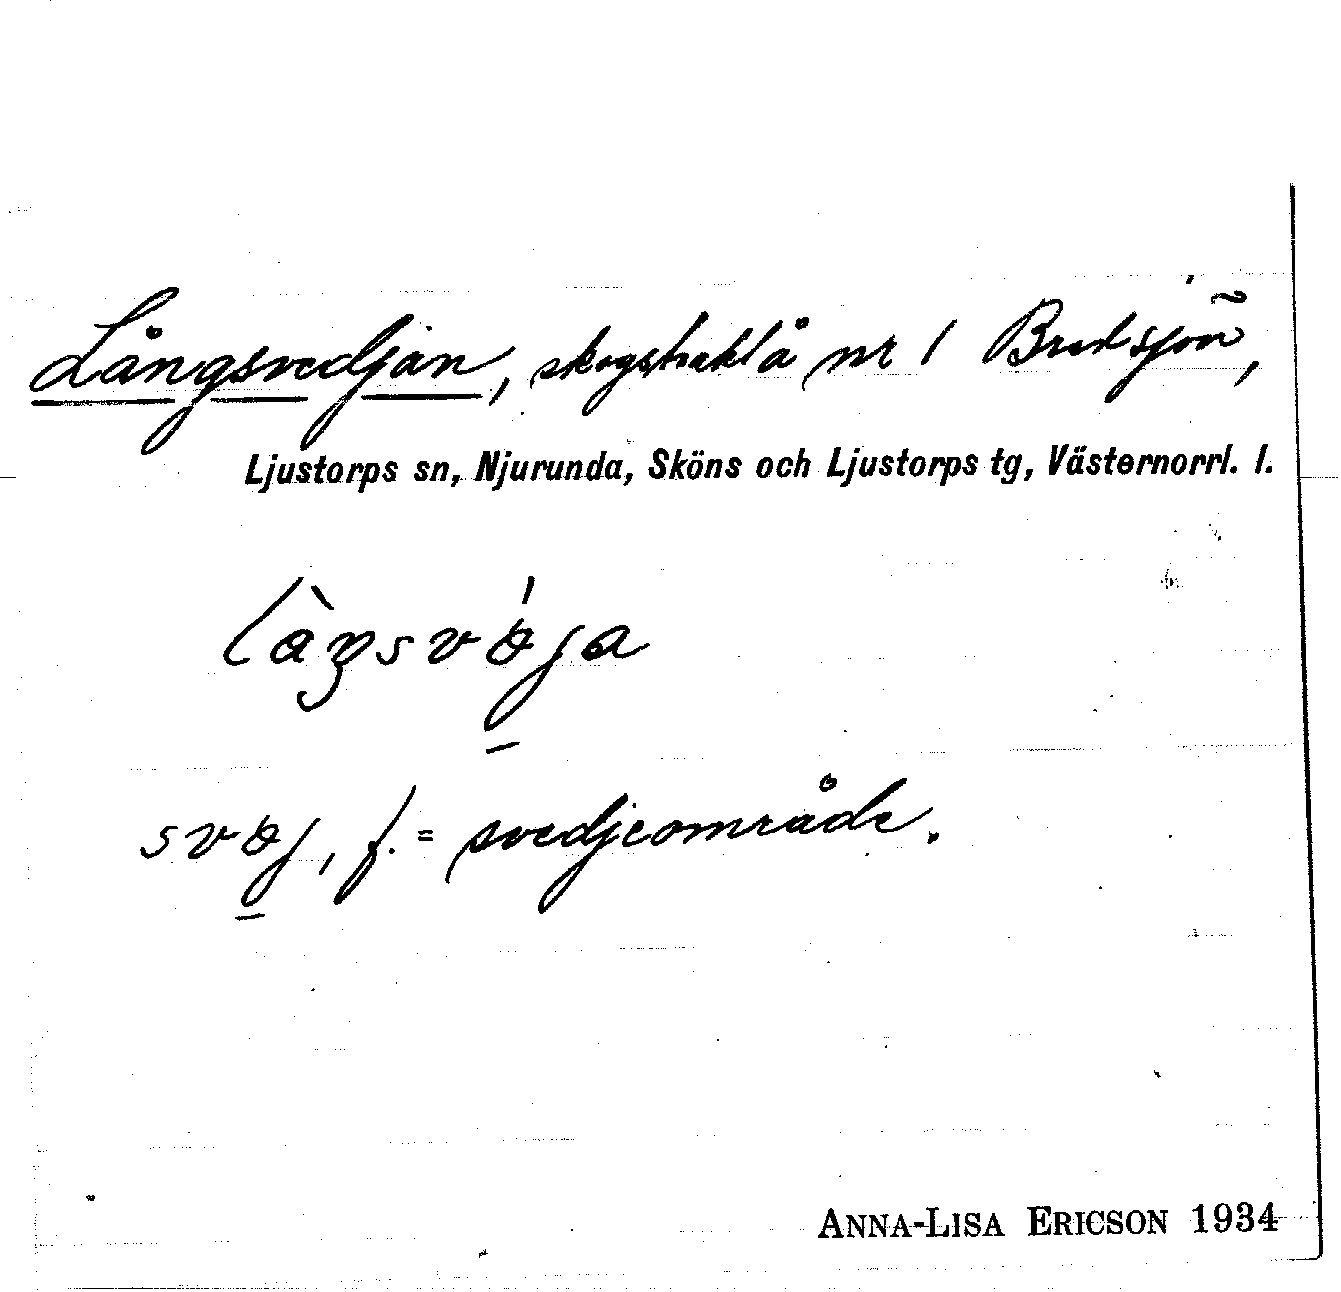 Långsvedjan, skogstrakt å nr 1 Bredsjön,
Ljustorps sn, Njurunda, Sköns och Ljustorps tg, Västernorrl. l.
f. = svedjeområde.
ANNA-LISA ERICSON 1934